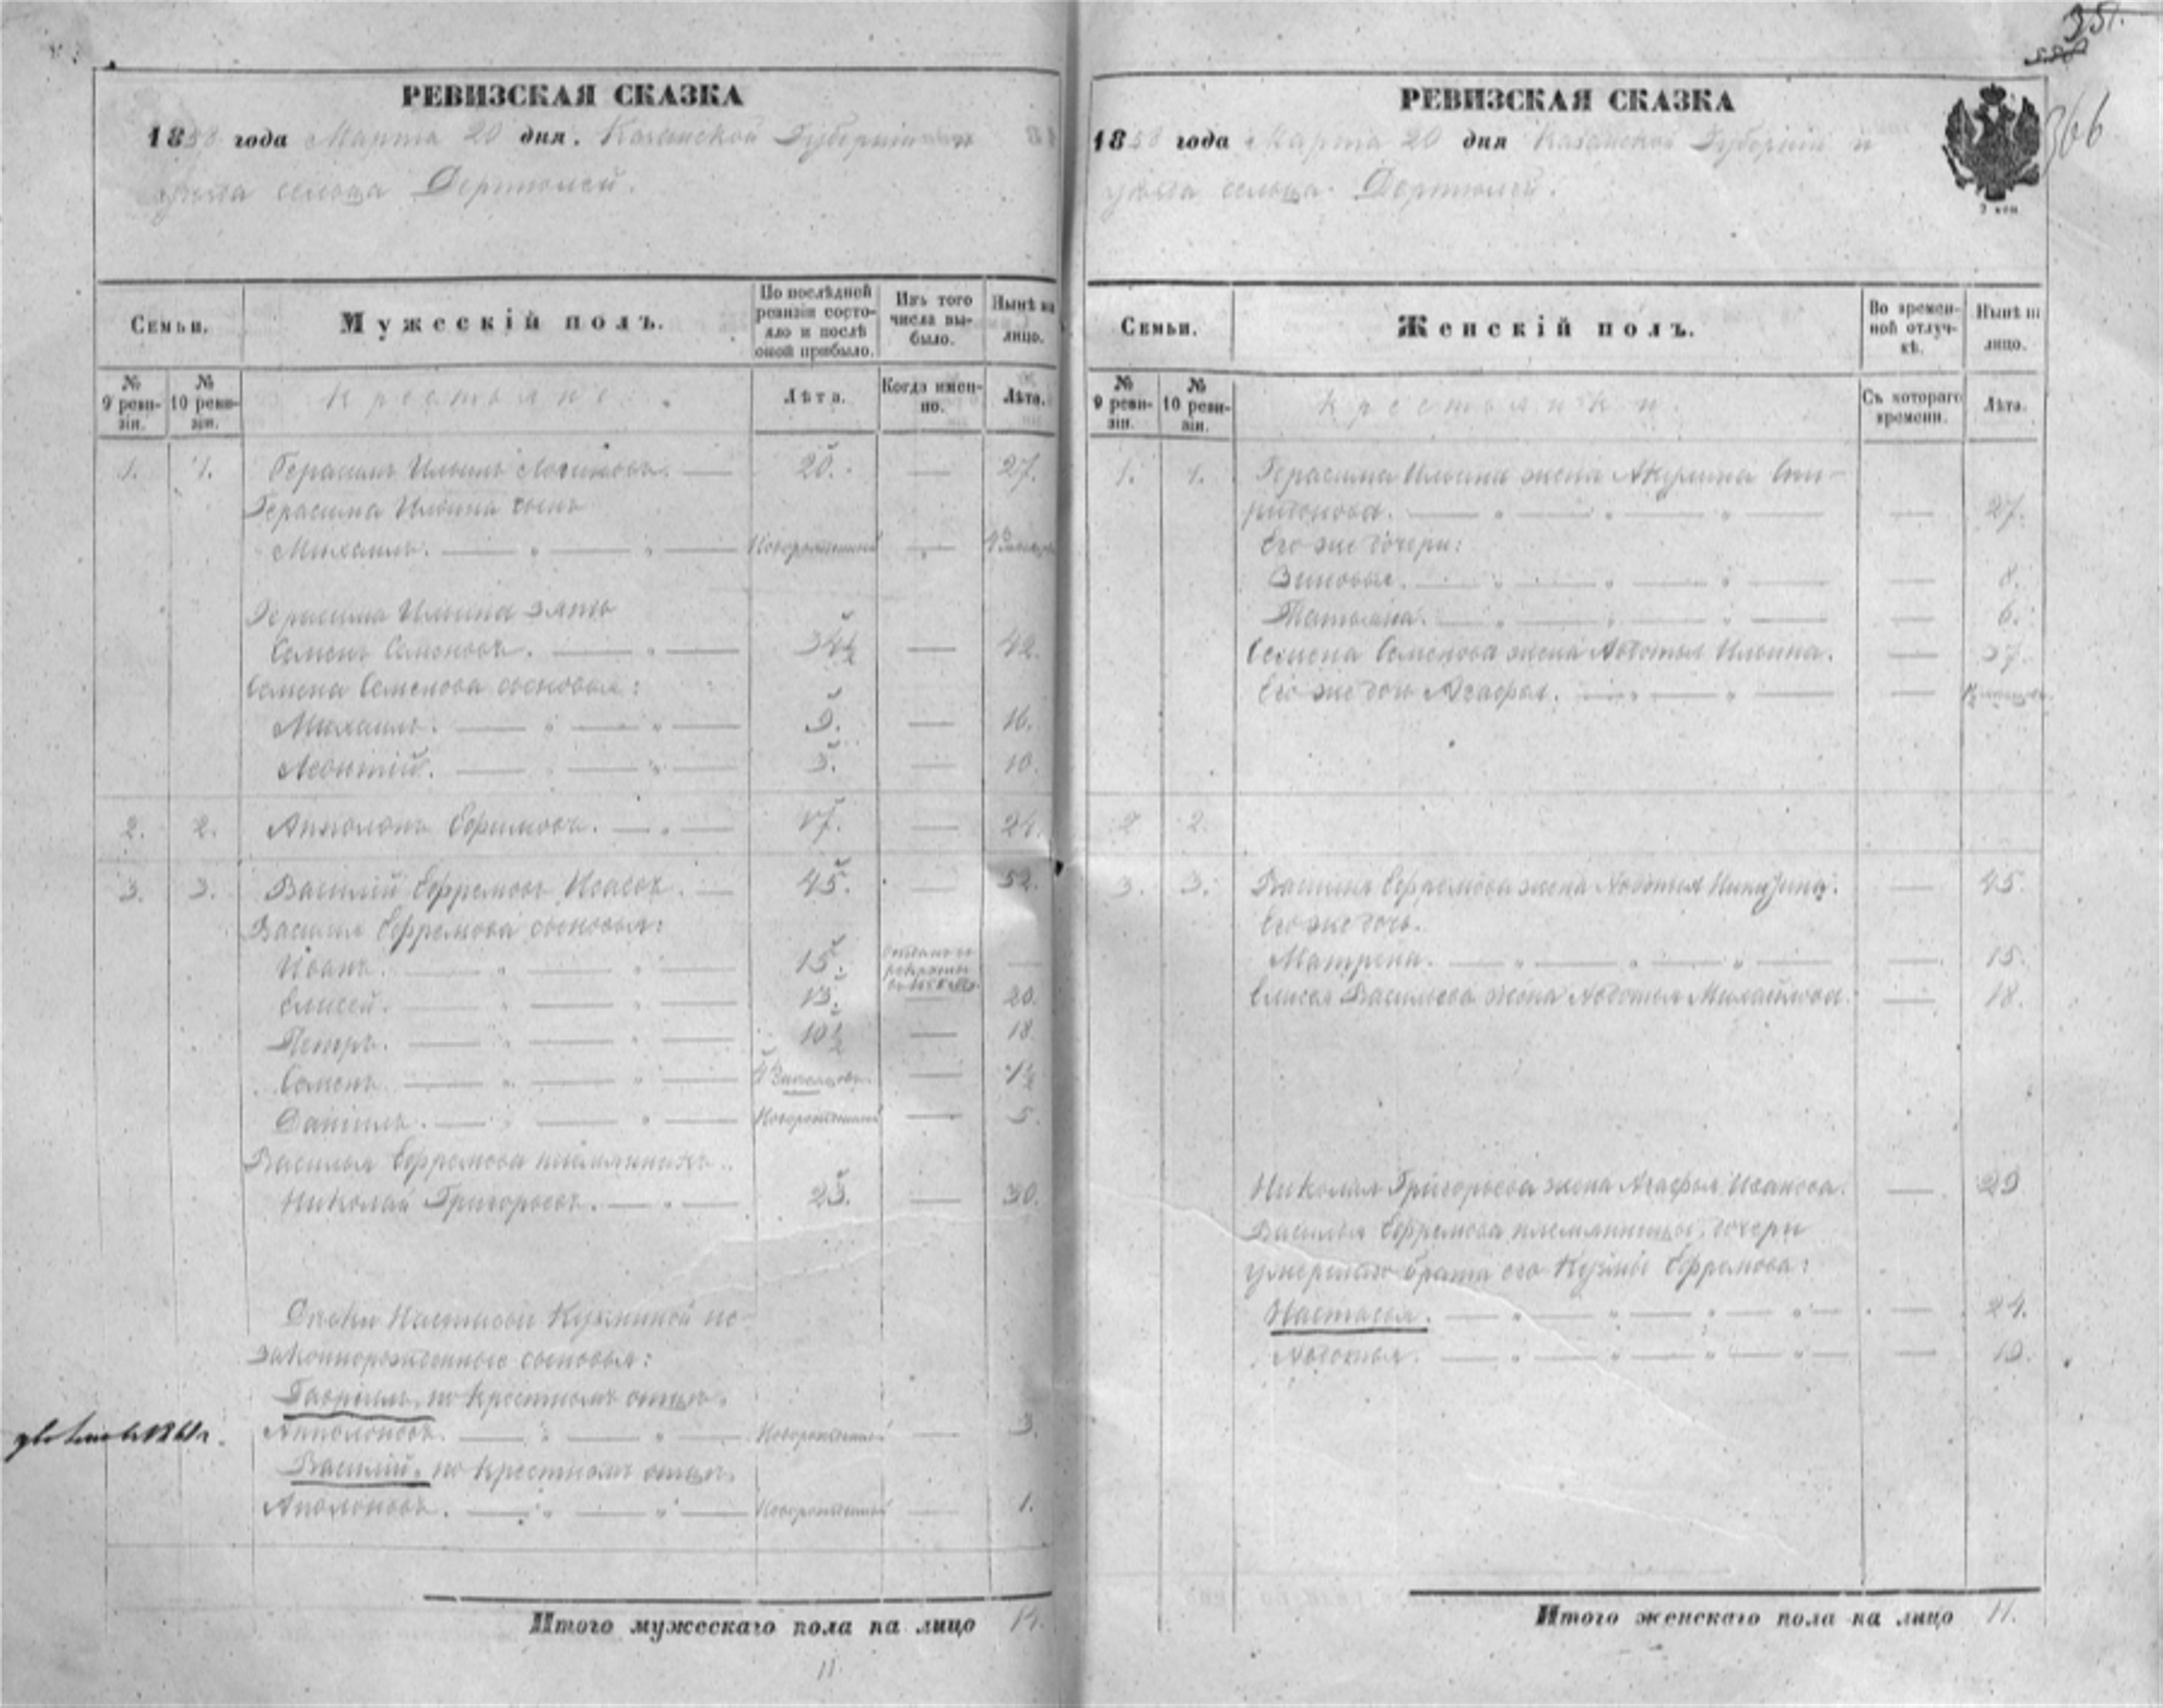 РЕВИЗСКАЯ СКАЗКА
1858 года Марта 20 дня. Казанской Губерніи и
уѣзда сельца Дертюлей.
Семьи.
Мужескій полъ.
По послѣдней ревизіи состояло и послѣ оной прибыло.
Изъ того числа выбыло.
Нынѣ на лицо.
№ 9 ревизіи.
№ 10 ревизіи.
Крестьяне.
Лѣта.
Когда именно.
Лѣта.
1. 1. Герасимъ Ильинъ 20. — 27.
Герасима Ильина сынъ
Михаилъ. Новорожденный —
Герасима Ильина зять
Семенъ Семеновъ. 34½ — 42.
Семена Семенова сыновья:
Михаилъ. 9. — 16.
Леонтій. 3. — 10.
2. 2. Апполонъ Ефремовъ. 17. — 24.
3. 3. Василій Ефремовъ 45. — 52.
Василья Ефремова сыновья:
Иванъ. 15. —
Елисей. 13. — 20.
Петръ. 10½ — 18
Семенъ —
Данилъ. Новорожденный — 5.
Василья Ефремова племянникъ.
Николай Григорьевъ. 23. — 30.
Настасьи Кузминой не-
законнорожденные сыновья:
Гаврилъ, по крестномъ отцѣ.
Апполоновъ. Новорожденный — 3.
Василій, по крестномъ отцѣ,
Аполоновъ. Новорожденный — 1.
Итого мужескаго пола на лицо 14.
11.
351.
366
РЕВИЗСКАЯ СКАЗКА
1858 года Марта 20 дня Казанской Губерніи и
уѣзда сельца Дертюлей.
Семьи.
Женскій полъ.
Во временной отлучкѣ.
Нынѣ на лицо.
№ 9 ревизіи.
№ 10 ревизіи.
Крестьянки.
Съ котораго времени.
Лѣта.
1. 1. Герасима Ильина жена Акулина Спи-
ридонова. — 27.
Его же дочери:
Зиновья. — 8.
Татьяна. — 6.
Семена Семенова жена Авдотья Ильина. — 37.
Его же дочь Агафья. —
2 2.
3. 3. Василья Ефремова жена Авдотья — 45.
Его же дочь.
Матрена. — 15.
Елисея Васильева жена Авдотья Михайлова. — 18.
Николая Григорьева жена Агафья Иванова. — 29
Василья Ефремова племянницы, дочери
умершаго брата его Кузмы Ефремова:
Настасья. — 24.
Авдотья. — 19.
Итого женскаго пола на лицо 11.